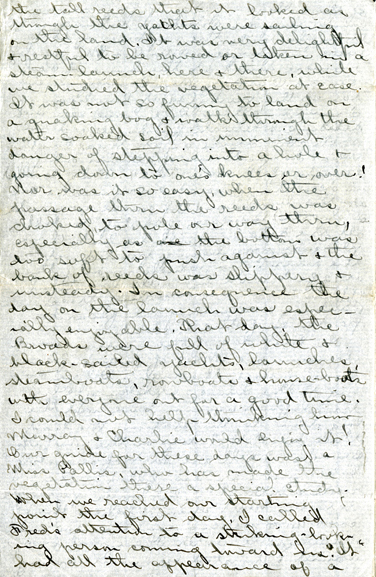 the tall reeds that it looked as
though the yachts were sailing
on the land. It was very delightful
& restful to be rowed or taken by a
steam launch, here & there, while
we studied the vegetation at ease.
It was not so funny to land on
a quaking bog & walk through the
water soaked soil in imminent
danger of stepping into a hole &
going down to one's knees or over!
Nor was it so easy, when the
passage thru the reeds was
choked to pole our way thru,
especially as the bottom was
too soft to push against & the
bank of reeds was slippery &
unsteady. In consequence the
day on the launch was espec-
ially enjoyable. That day, the
Broads were full of white &
black-sailed yachts, launches,
steamboats, rowboats & house-boats
with everyone out for a good time.
I could not help thinking how
Murray & Charlie would enjoy it!
Our guide for these days was a
Miss Pallis, who has made the
vegetation there a special study.
When we reached our starting
point the first day, I called
Fred's attention to a striking-look-
ing person coming toward us. "It"
had all the appearance of a